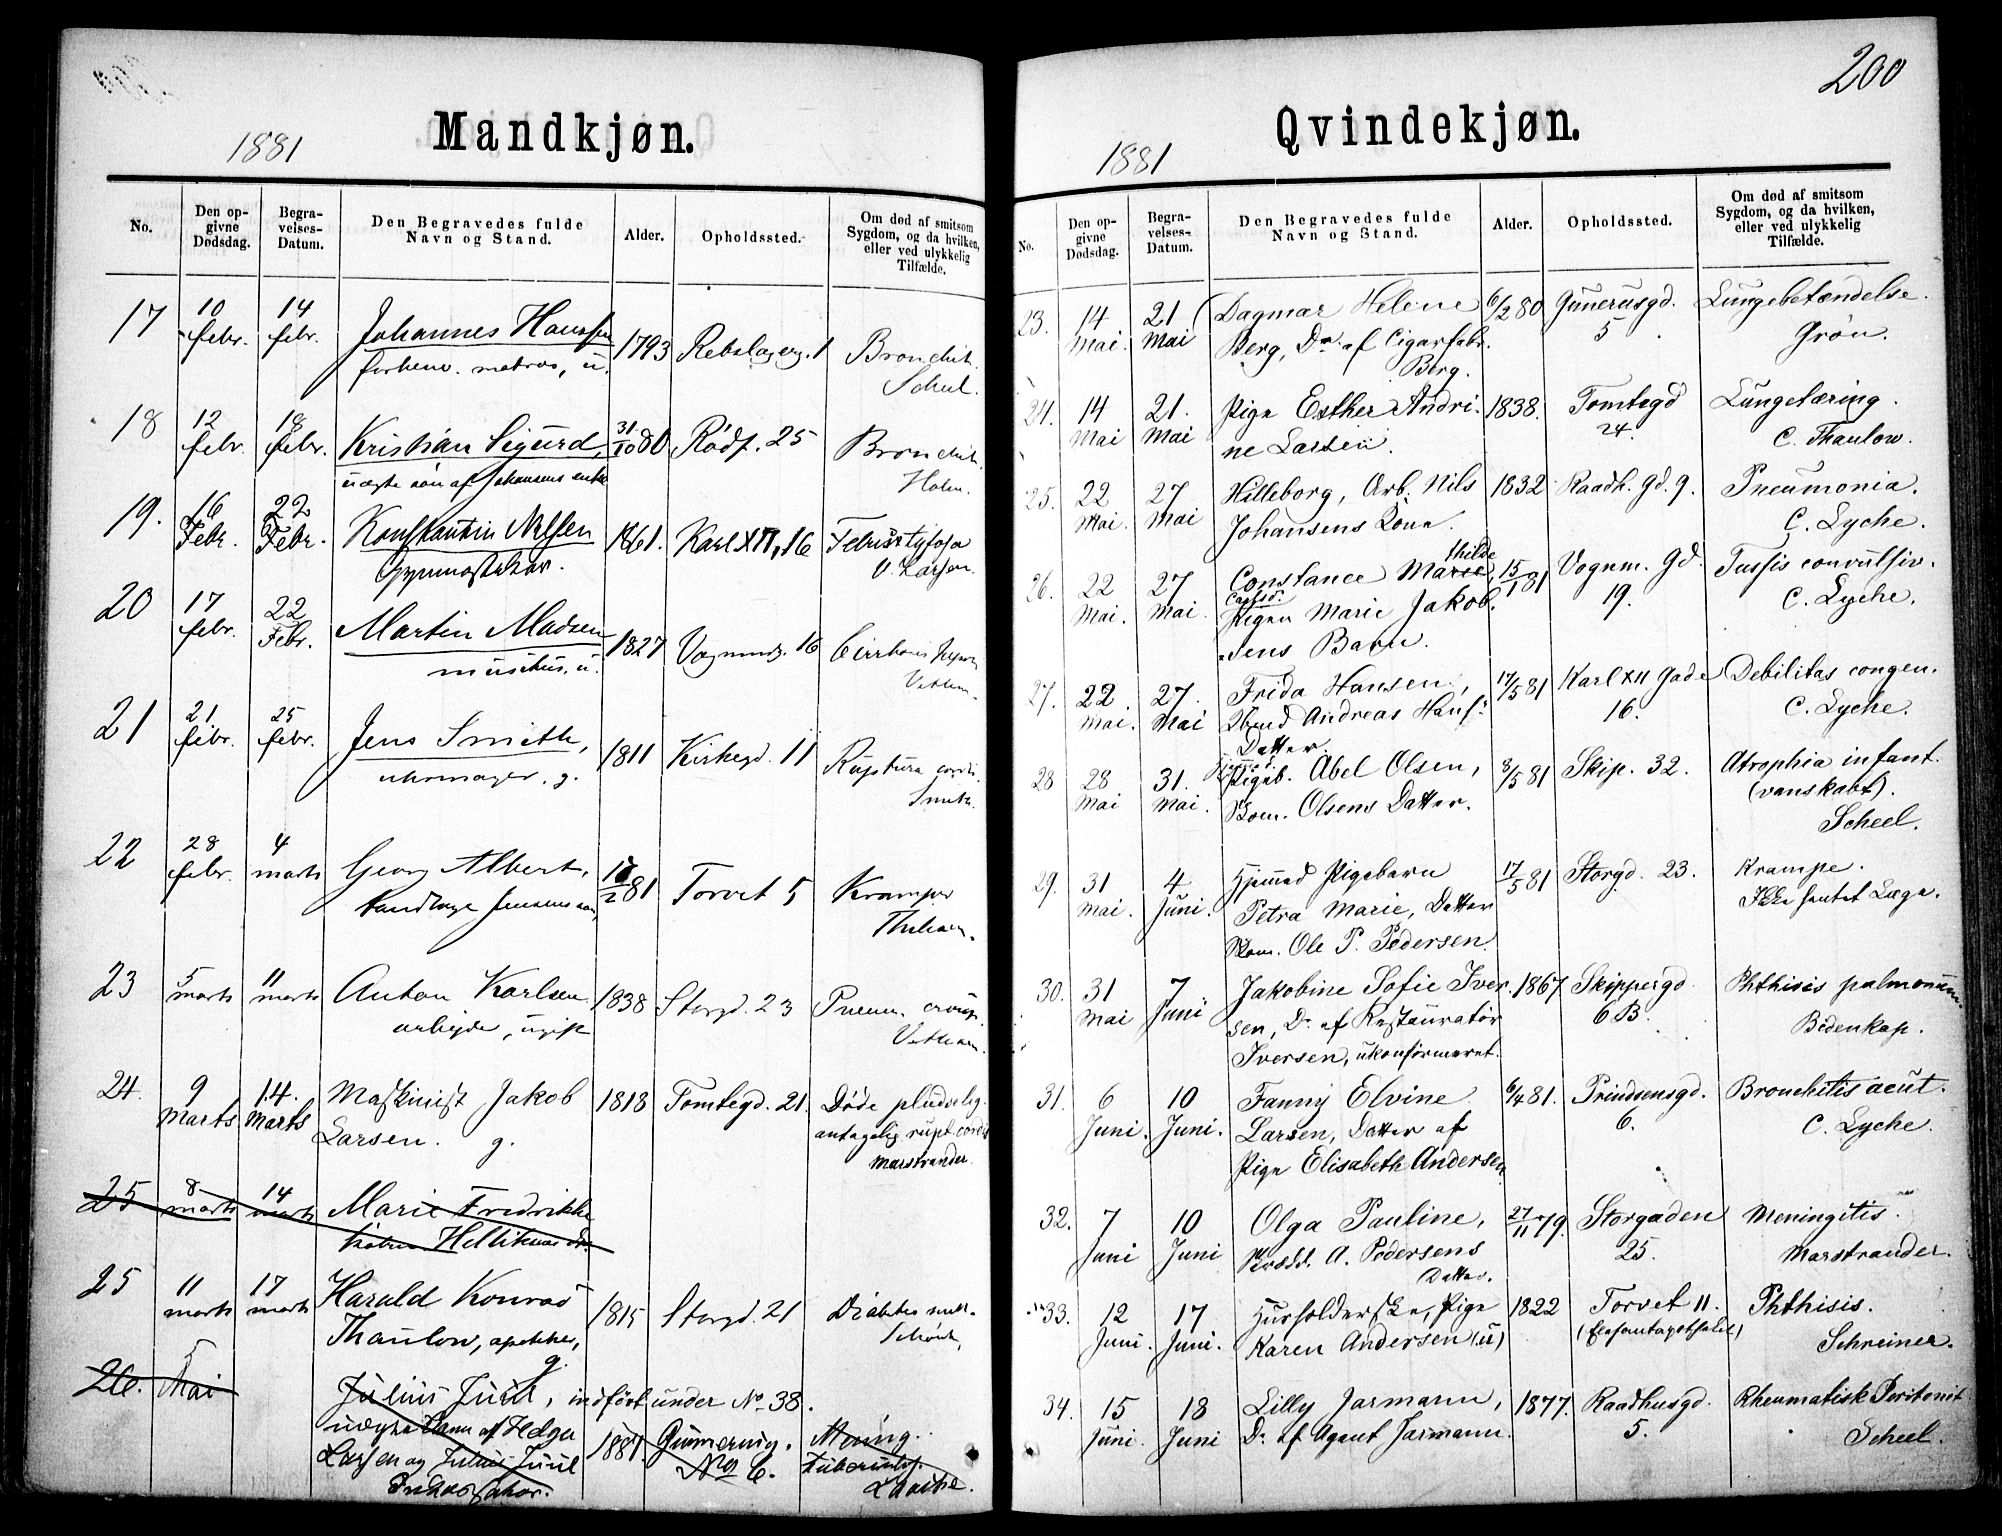 200
1881
Mandkjøn.
No.
Den op-
givne
Dødsdag.
Begra-
velses-
Datum.
Den Begravedes fulde
Navn og Stand.
Alder.
Opholdssted.
Om død af smitsom
Sygdom, og da hvilken,
eller ved ulykkelig
Tilfælde.
17 10 febr. 14 febr. Johannes Hanssen 1793 Rebslagerg. 1 Bronchit.
forhenv. matros, u.
18 12 febr. 18 febr. Kristian Sigurd, 31/10 80 Rödf. 25 Bronchit.
uægte søn af Johansens enke Holm.
19. 16 Febr. 22 Febr. Konstantin Nilsen 1861. Karl XII, 16 Febris tyfosa
V. Larsen.
20 17 febr. 22 Febr. Martin Madsen 1827 Vognmdg. 16 Cirrhosis
musikus, u.
21 21 febr. 25 febr. Jens Smith, 1811 Kirkegd. 11 Ruptura cordis.
uhrmager. g. Smith.
22 28 febr. 4 marts Georg Albert, 81 Torvet 5 Kramper
tandlæge Jensens søn
23 5 marts 11 marts Anton Karlsen 1838 Storgd. 23 Pneum. croup.
arbejder, ugift
24. 9 Marts 14. Marts Maskinist Jakob 1813 Tomtegd. 21. Døde pludselig.
Larsen. g. antagelig rupt. cordis
Marstrander.
25 8 marts 14 marts Marie Fredrikke
25 11 marts 17 marts Harald Konrad 1815 Storgd. 21 Diabetes mell.
Thaulow, apotheker,
g.
26. 5 Mai Julius Juul, indført under No 38.
uægte Barn af Helga 1881. No 6. Mening.
Larsen og Julius Juul
1881
Qvindekjøn.
No.
Den op-
givne
Dødsdag.
Begra-
velses-
Datum.
Den Begravedes fulde
Navn og Stand.
Alder.
Opholdssted.
Om død af smitsom
Sygdom, og da hvilken,
eller ved ulykkelig
Tilfælde.
23. 14 Mai. 21 Mai Dagmar Helene 6/2 80 Gunerusgd. 5 Lungebetændelse.
Berg, Dr. af Cigarfabr. Grön.
Berg.
24. 14 Mai 21. Mai Pige Esther Andri- 1838. Tomtegd 24. Lungetæring.
ne Larsen. C. Thaulow.
25. 22 Mai. 27 Mai Hilleborg, Arb. Nils 1832 Raadh. Gd. 9. Pneumonia.
Johansens Kone. C. Lyche.
thilde
26. 22 Mai. 27 Mai Constance Marie, 15/1 81 Vognm. Gd. 19. Tussis convulsiv.
Pigen Marie Jakob- C. Lyche.
sens Barn.
27. 22 Mai. 27. Mai Frida Hansen, 17/5 81 Karl XII Gade 16. Debilitas congen.
Andreas Hans. C. Lyche.
Datter.
28 28 Mai 31. Mai. Pigeb. Abel Olsen, 8/5 81 Skip. 32. Atrophia infant.
Kom. Olsens Datter. (vanskabt).
Scheel.
29. 31 Mai. 4 Juni. Hjemed. Pigebarn 17/5 81 Storgd. 23. Krampe.
Petra Marie, Datter Ikke hentet Læge.
Kom. Ole P. Pedersen.
30. 31 Mai 7 Juni Jakobine Sofie Iver- 1867 Skippergd. 6 B. Phthisis palmonum.
sen, Dr. af Restauratør Bidenkap.
Iversen, ukonfirmeret.
31. 6 Juni. 10 Juni. Fanny Elvine 6/4 81. Prindsensgd. 6. Bronchitis acut.
Larsen, Datter af C. Lyche.
Pige Elisabeth Andersen
32. 7 Juni 10 Juni Olga Pauline, 27/11 79. Storgaden 25. Meningitis.
A. Pedersens Marstrander.
Datter.
33. 12 Juni. 17 Juni. Husholderske, Pige 1822 Torvet 11. Phthisis.
Karen Andersen (u) (Elefantapothek) Schreiner.
34. 15 Juni. 18 Juni Lilly Jarmann, 1877. Raadhusgd. 5. Rheumatisk Peritonit
Dr. af Agent Jarmann. Scheel.